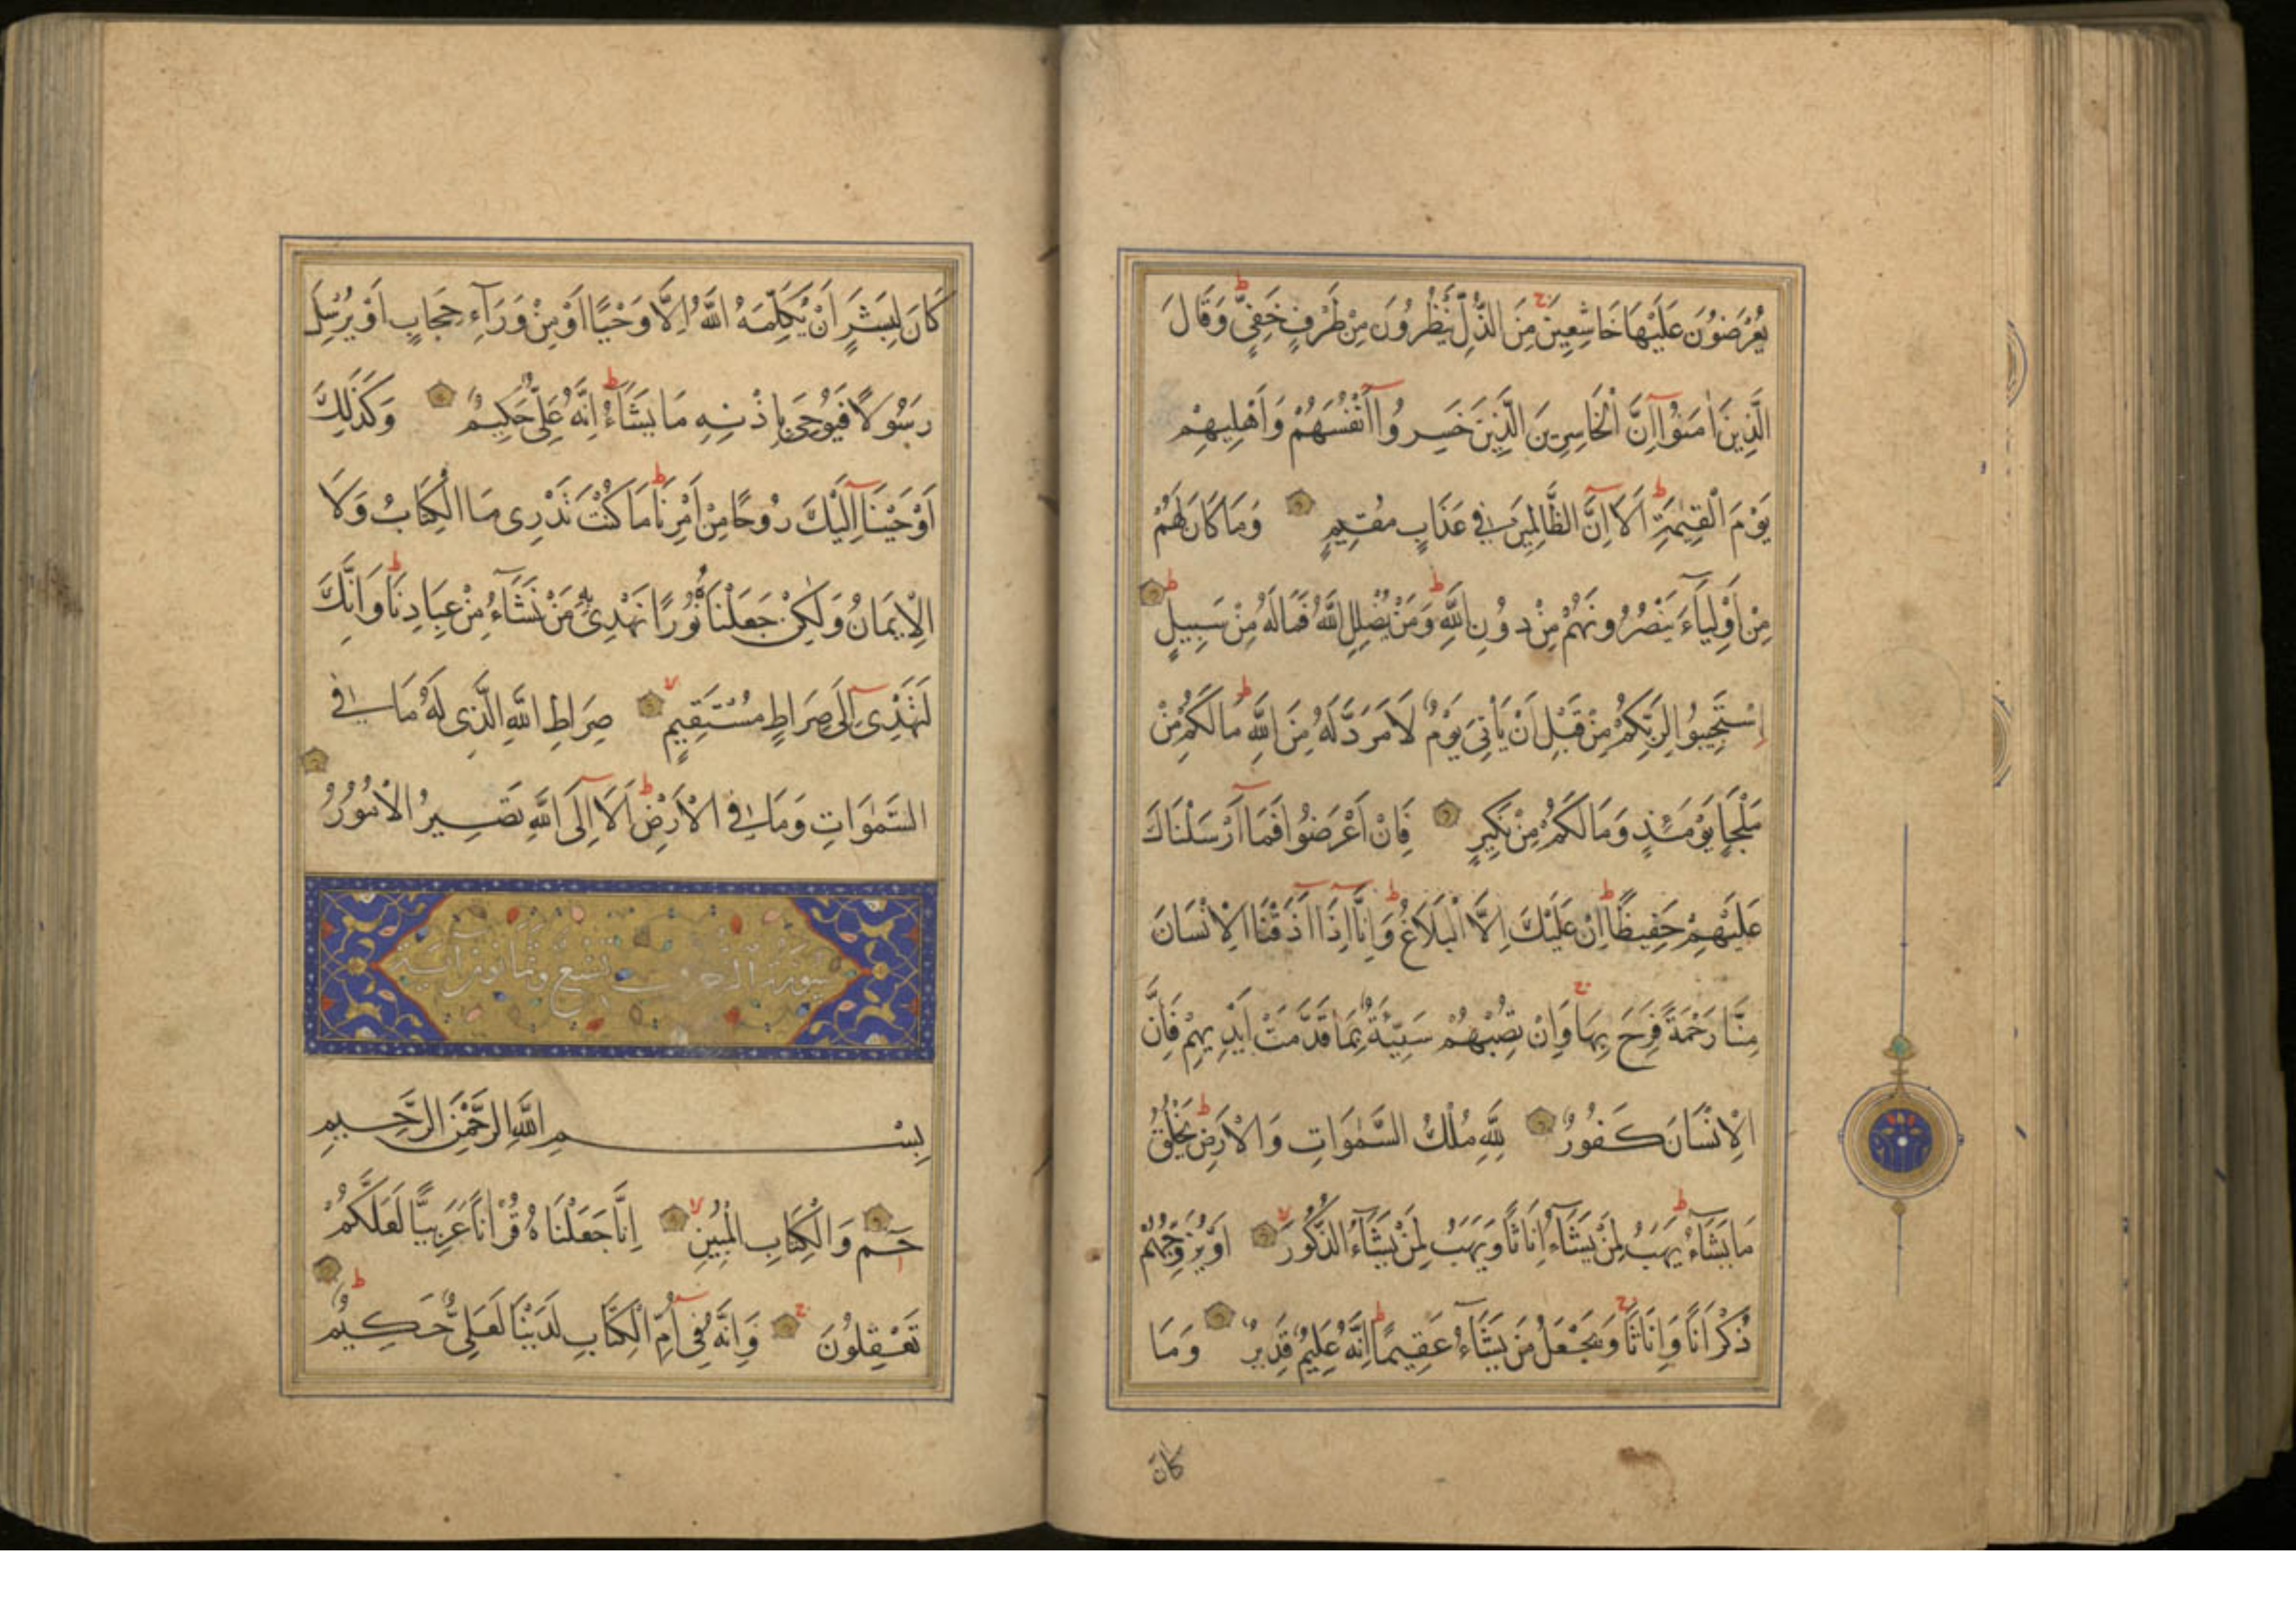 يُعْرَضُونَ عَلَيْهَا خَاشِعِينَ مِنَ الذُّلِّ يَنْظُرُونَ مِنْ طَرْفٍ خَفِيٍّ وَقَالَ
الَّذِينَ اٰمَنُوٓا اِنَّ الْخَاسِرِينَ الَّذِينَ خَسِرُوٓا اَنْفُسَهُمْ وَاَهْلِيهِمْ
يَوْمَ الْقِيٰمَةِ اَلَآ اِنَّ الظَّالِمِينَ فِي عَذَابٍ مُقِيمٍ وَمَا كَانَ لَهُمْ
مِنْ اَوْلِيَآءَ يَنْصُرُونَهُمْ مِنْ دُونِ اللّٰهِ وَمَنْ يُضْلِلِ اللّٰهُ فَمَا لَهُ مِنْ سَبِيلٍ
اِسْتَجِيبُوا لِرَبِّكُمْ مِنْ قَبْلِ اَنْ يَأْتِيَ يَوْمٌ لَا مَرَدَّ لَهُ مِنَ اللّٰهِ مَا لَكُمْ مِنْ
مَلْجَاٍ يَوْمَئِذٍ وَمَا لَكُمْ مِنْ نَكِيرٍ فَاِنْ اَعْرَضُوا فَمَآ اَرْسَلْنَاكَ
عَلَيْهِمْ حَفِيظًا اِنْ عَلَيْكَ اِلَّا الْبَلَاغُ وَاِنَّآ اِذَآ اَذَقْنَا الْاِنْسَانَ
مِنَّا رَحْمَةً فَرِحَ بِهَا وَاِنْ تُصِبْهُمْ سَيِّئَةٌ بِمَا قَدَّمَتْ اَيْدِيهِمْ فَاِنَّ
الْاِنْسَانَ كَفُورٌ لِلّٰهِ مُلْكُ السَّمٰوَاتِ وَالْاَرْضِ يَخْلُقُ
مَا يَشَآءُ يَهَبُ لِمَنْ يَشَآءُ اِنَاثًا وَيَهَبُ لِمَنْ يَشَآءُ الذُّكُورَ اَوْ يُزَوِّجُهُمْ
ذُكْرَانًا وَاِنَاثًا وَيَجْعَلُ مَنْ يَشَآءُ عَقِيمًا اِنَّهُ عَلِيمٌ قَدِيرٌ وَمَا
كان
كَانَ لِبَشَرٍ اَنْ يُكَلِّمَهُ اللّٰهُ اِلَّا وَحْيًا اَوْ مِنْ وَرَآءِ حِجَابٍ اَوْ يُرْسِلَ
رَسُولًا فَيُوحِيَ بِاِذْنِهِ مَا يَشَآءُ اِنَّهُ عَلِيٌّ حَكِيمٌ وَكَذٰلِكَ
اَوْحَيْنَآ اِلَيْكَ رُوحًا مِنْ اَمْرِنَا مَا كُنْتَ تَدْرِى مَا الْكِتَابُ وَلَا
الْاِيمَانُ وَلٰكِنْ جَعَلْنَاهُ نُورًا نَهْدِى بِهِ مَنْ نَشَآءُ مِنْ عِبَادِنَا وَاِنَّكَ
لَتَهْدِىٓ اِلٰى صِرَاطٍ مُسْتَقِيمٍ صِرَاطِ اللّٰهِ الَّذِى لَهُ مَا فِي
السَّمٰوَاتِ وَمَا فِي الْاَرْضِ اَلَآ اِلَى اللّٰهِ تَصِيرُ الْاُمُورُ
سورة الزخرف تسع وثمانون آية
بِسْمِ اللّٰهِ الرَّحْمٰنِ الرَّحِيمِ
حٰمٓ وَالْكِتَابِ الْمُبِينِ اِنَّا جَعَلْنَاهُ قُرْاٰنًا عَرَبِيًّا لَعَلَّكُمْ
تَعْقِلُونَ وَاِنَّهُ فِىٓ اُمِّ الْكِتَابِ لَدَيْنَا لَعَلِيٌّ حَكِيمٌ